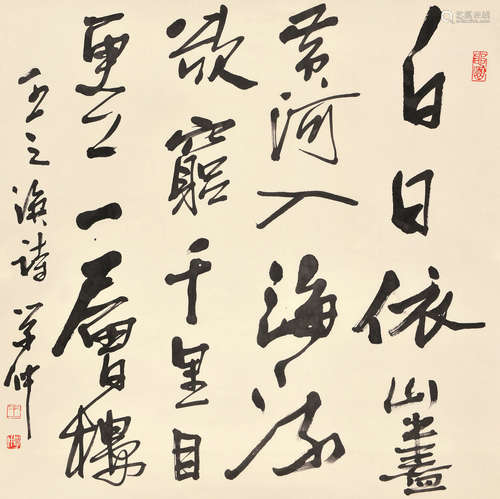 白日依山盡
黄河入海流
欲窮千里目
更上一層樓
王之渙詩 学仲